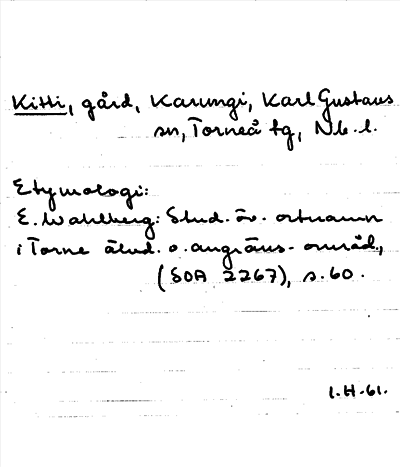 Kitti, gård, Karungi, Karl Gustavs
sn, Torneå tg, Nb. l.
Etymologi:
E. Wahlberg: Stud. öv. ortnamn
i Torne älvd. o. angräns. område,
(SOA 2267), s. 60.
1.H.61.